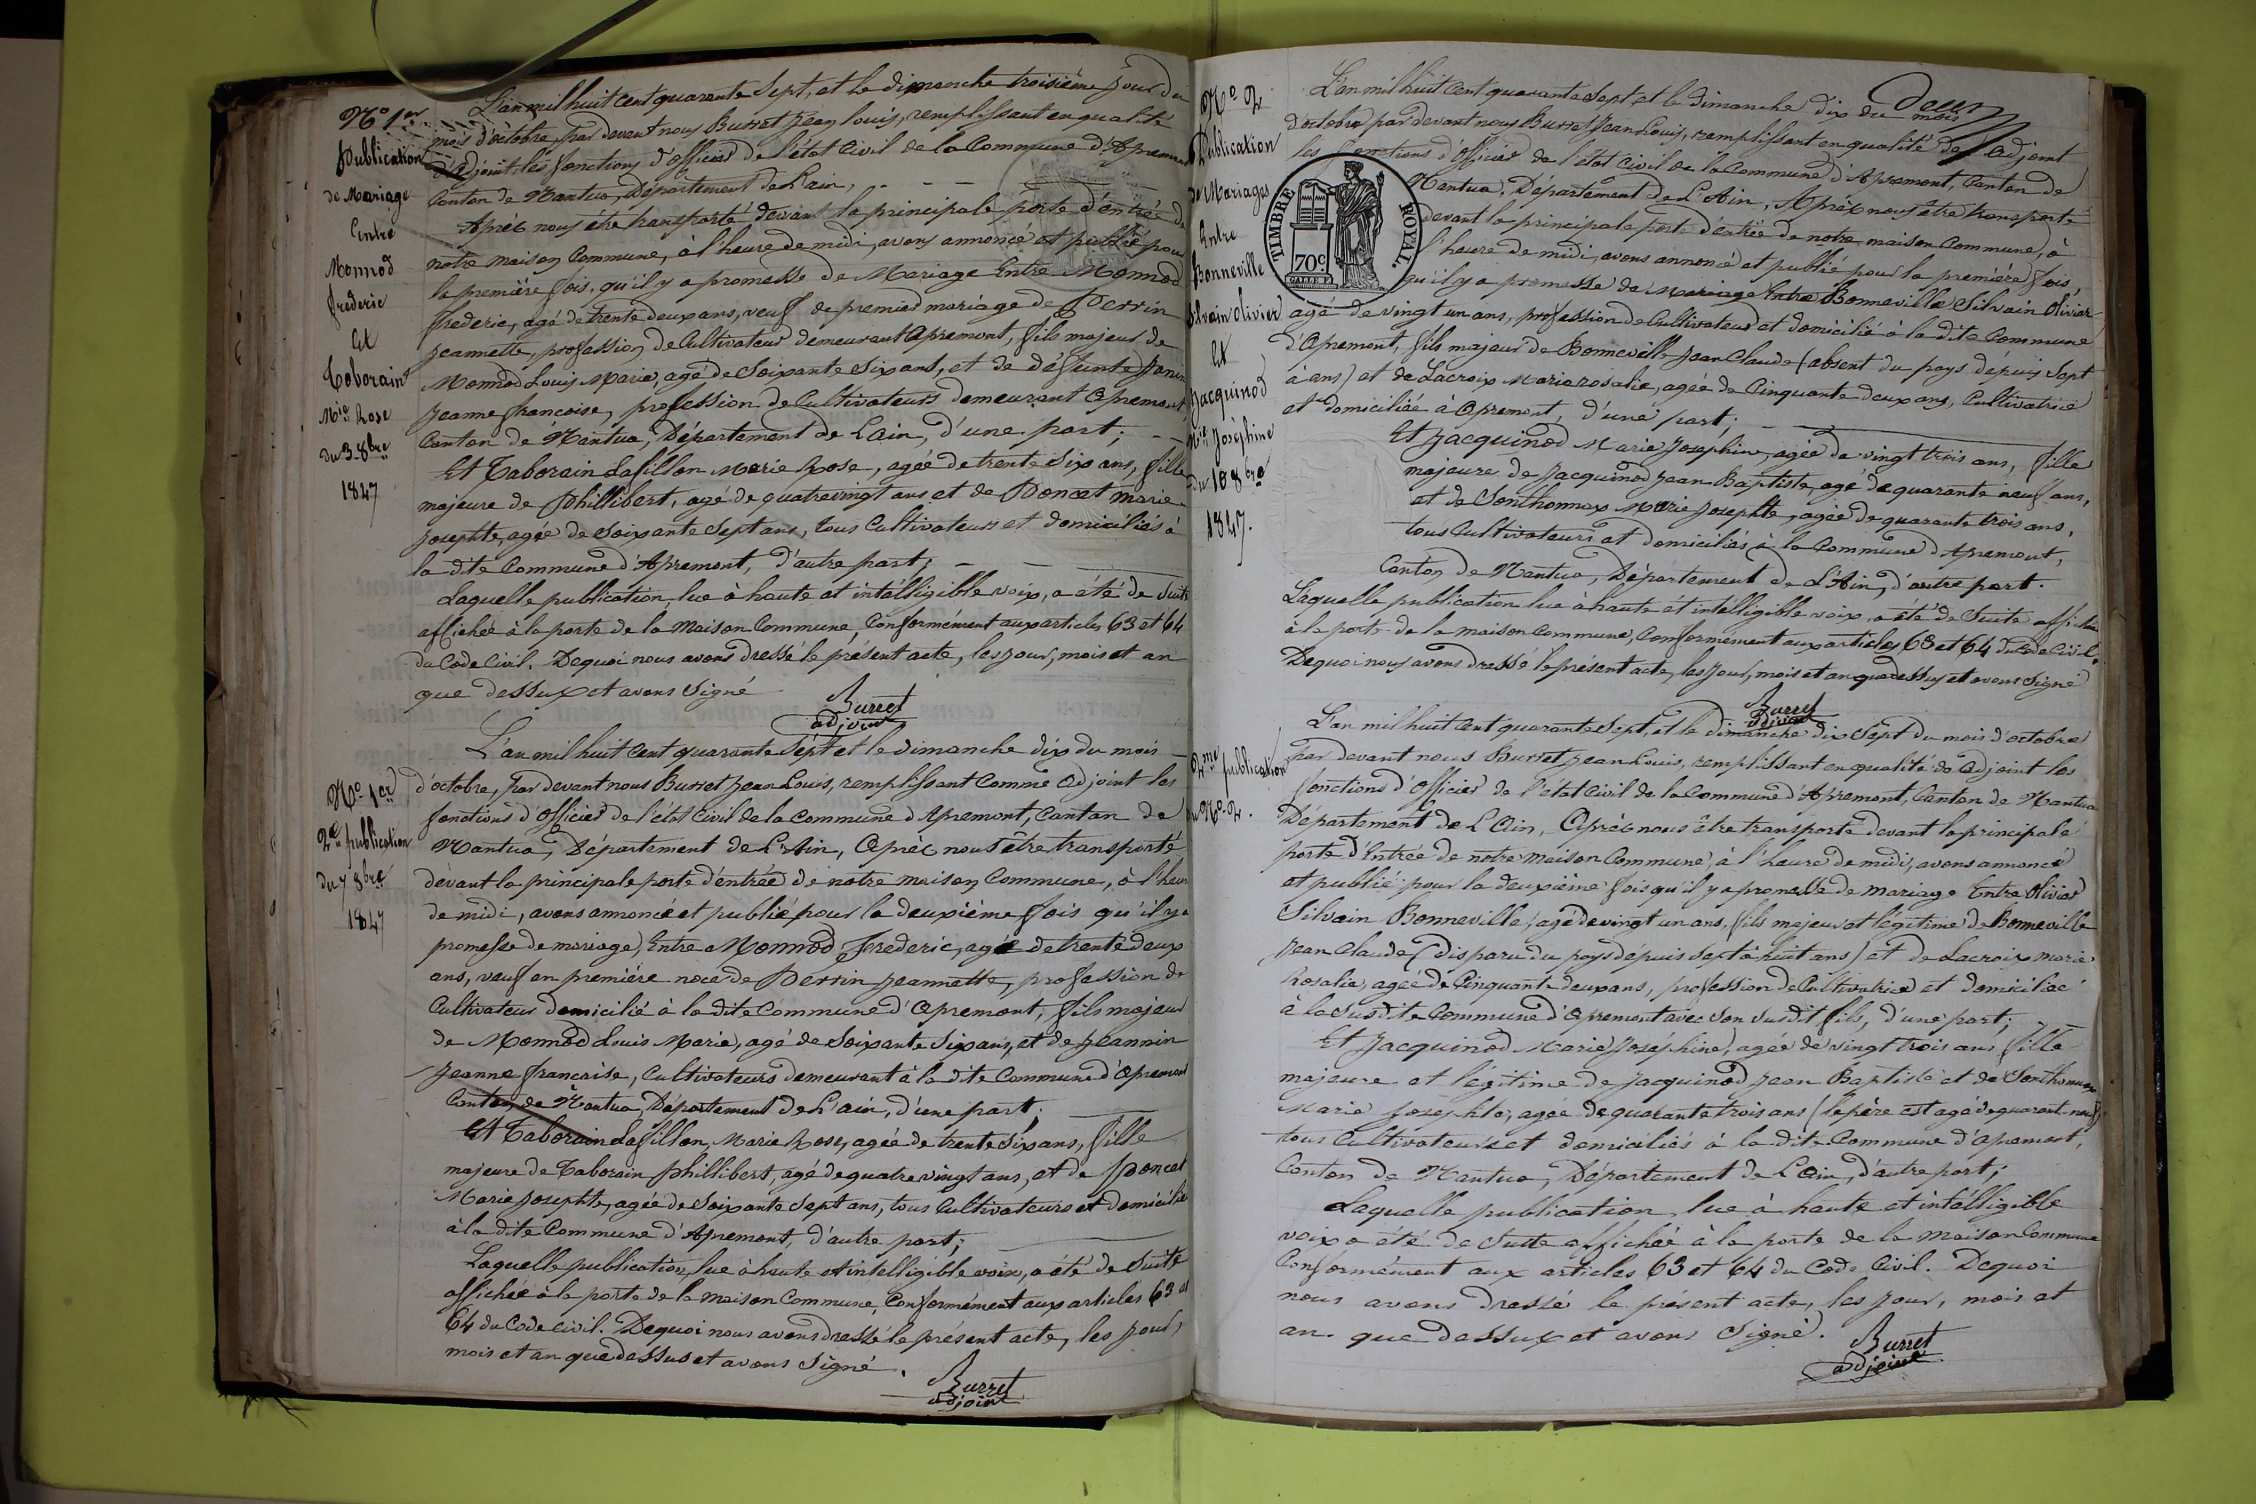 N.o 1.er
Publication
de Mariage
Entre
Monnod
frederic
Et
Taborain
M.ie Rose
du 3 8bre
1847
L'an mil huit cent quarante Sept, et le dimanche troisième jour du
mois d'octobre, par devant nous Burret Jean louis, remplissant en qualité
d'adjoint les fonctions d'officier de l'état Civil de la Commune d'Apremont
Canton de Nantua, Département de L'ain,
Après nous être transporté devant la principale porte d'entrée de
notre maison Commune, à l'heure de midi, avons annoncé et publié pour
la première fois, qu'il y a promesse de Mariage Entre Monnod
frederic, agé de trente deux ans, veuf de premier mariage de Perrin
Jeannette, profession de Cultivateur demeurant Apremont, fils majeur de
Monnod Louis Marie, agé de Soixante Six ans, et de défunte Janin
Jeanne francoise, profession de Cultivateurs demeurant Apremont
Canton de Nantua, Département de L'ain, d'une part;
Et Taborain Lafillon Marie Rose, agée de trente Six ans, fille
majeure de Phillibert, agé de quatrevingt ans et de Poncet Marie
Josephte, agée de Soixante Sept ans, tous Cultivateurs et domiciliés à
la dite Commune d'Apremont, d'autre part;
Laquelle publication, lue à haute et intélligible voix, a été de Suite
affichée à la porte de la Maison Commune, Conformément aux articles 63 et 64
du Code Civil. De quoi nous avons dressé le présent acte, les jour, mois et an
que dessux et avons Signé
Burret
adjoint
N.o 1.er
2.e publication
du 7 8bre
1847
L'an mil huit Cent quarante Sept et le dimanche dix du mois
d'octobre, par devant nous Burret Jean Louis, remplissant Comme adjoint les
fonctions d'officier de l'état Civil de la Commune d'Apremont, Canton de
Nantua, Département de L'Ain, Après nous être transporté
devant la principale porte d'entrée de notre maison Commune, à l'heure
de midi, avons annoncé et publié pour la deuxième fois qu'il y a
promesse de mariage, Entre Monnod Frederic, agé de trente deux
ans, veuf en première noce de Perrin Jeannette, profession de
Cultivateur domicilié à la dite Commune d'Apremont, fils majeur
de Monnod Louis Marie, agé de Soixante Six ans, et de Jeannin
Jeanne francoise, Cultivateurs demeurant à la dite Commune d'Apremont
Canton de Nantua, Département de L'ain, d'une part;
Et Taborain Lafillon, Marie Rose, agée de trente Six ans, fille
majeure de Taborain phillibert, agé de quatre vingt ans, et de Poncet
Marie Josephte, agée de Soixante Sept ans, tous Cultivateurs et domiciliés
à la dite Commune d'Apremont, d'autre part;
Laquelle publication, lue à haute et intelligible voix, a été de Suite
affichée à la porte de la Maison Commune, Conformément aux articles 63 et
64 du Code Civil. De quoi nous avons dressé le présent acte, les jour,
mois et an que dessus et avons Signé.
Burret
adjoint
deux
N.o 2
Publication
de Mariages
Entre
Bonneville
Silvain Olivier
Et
Jacquinod
M.ie Joséphine
du 10 8bre
1847.
L'an mil huit Cent quarante Sept et le dimanche dix du mois
d'octobre par devant nous Burret Jean Louis, remplissant en qualité de adjoint
les fonctions d'officier de l'état Civil de la Commune d'Apremont, Canton de
Nantua, Département de L'Ain, Après nous être transporté
devant la principale porte d'entrée de notre maison Commune, à
l'heure de midi, avons annoncé et publié pour la première fois,
qu'il y a promesse de Mariage Entre Bonneville Silvain Olivier
agé de vingt un ans, profession de Cultivateur et domicilié à la dite Commune
d'Apremont, fils majeur de Bonneville Jean Claude (absent du pays dépuis Sept
à ans) et de Lacroix Marie rosalie, agée de Cinquante deux ans, Cultivatrice
et domiciliée à Apremont, d'une part;
Et Jacquinod Marie Josephine, agée de vingt trois ans, fille
majeure de Jacquinod Jean Baptiste, agé de quarante neuf ans,
et de Sonthonnax Marie Josephte, agée de quarante trois ans,
tous Cultivateurs et domiciliés à la Commune d'Apremont,
Canton de Nantua, Département de L'Ain, d'autre part.
Laquelle publication lue à haute et intelligible voix, a été de Suite affichée
à la porte de la maison Commune, Conformément aux articles 63 et 64 du Code Civil.
De quoi nous avons dressé le présent acte, les jour, mois et an que dessus et avons Signé
Burret
adjoint
TIMBRE ROYAL.
70c
2.me publication
du N.o 2.
L'an mil huit Cent quarante Sept, et le dimanche dix Sept du mois d'octobre
par devant nous Burret Jean Louis, remplissant en qualité de adjoint les
fonctions d'officier de l'état Civil de la Commune d'Apremont, Canton de Nantua
Département de L'Ain, Après nous être transporté devant la principale
porte d'Entrée de notre Maison Commune, à l'heure de midi, avons annoncé
et publié pour la deuxième fois qu'il y a promesse de mariage Entre Olivier
Silvain Bonneville, agé de vingt un ans, fils majeur et légitime de Bonneville
Jean Claude (disparu du pays dépuis Sept à huit ans) et de Lacroix marie
Rosalie, agée de Cinquante deux ans, profession de Cultivatrice et domiciliée
à la Susdite Commune d'Apremont avec Son Susdit fils, d'une part;
Et Jacquinod Marie Josephine, agée de vingt trois ans fille
majeure et légitime de Jacquinod Jean Baptiste et de Sonthonnax
Marie Josephte, agée de quarante trois ans (le père est agé de quarante neuf)
tous Cultivateurs et domiciliés à la dite Commune d'Apremont,
Canton de Nantua, Département de L'Ain, d'autre part;
Laquelle publication, lue à haute et intélligible
voix a été de Suite affichée à la porte de la Maison Commune
Conformément aux articles 63 et 64 du Code Civil. De quoi
nous avons dressé le présent acte, les jour, mois et
an que dessux et avons Signé.
Burret
adjoint